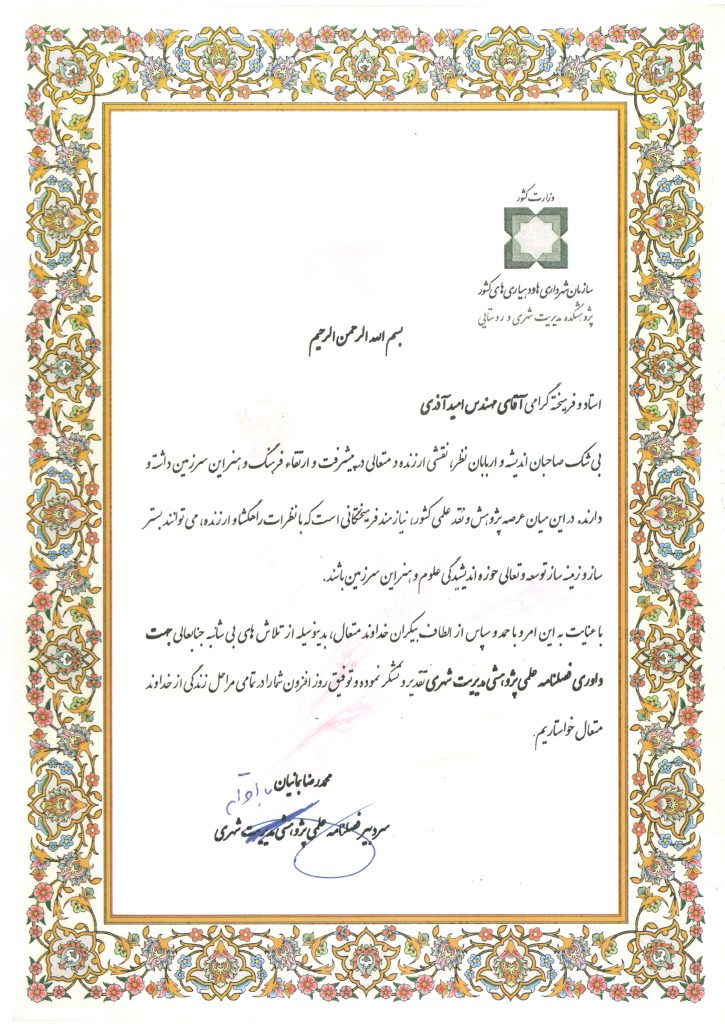 وزارت کشور
سازمان شهرداری ها و دهیاری های کشور
پژوهشکده مدیریت شهری و روستایی
بسم الله الرحمن الرحیم
استاد و فریخته گرامی آقای مهندس امید آذری
بی شک صاحبان اندیشه و اربابان نظر، نقشی ارزنده و متعالی در پیشرفت و ارتقاء فرهنگ و هنر این سرزمین داشته و
دارند. در این میان عرصه پژوهش و نقد علمی کشور، نیازمند فریختگانی است که با نظرات راهگشا و ارزنده، می توانند بستر
ساز و زمینه ساز توسعه و تعالی حوزه اندیشیدگی علوم و هنر این سرزمین باشند.
با عنایت به این امر و با حمد و سپاس از الطاف بیکران خداوند متعال، بدینوسیله از تلاش های بی شائبه جنابعالی جهت
داوری فصلنامه علمی پژوهشی مدیریت شهری تقدیر و تشکر نموده و توفیق روز افزون شما را در تمامی مراحل زندگی از خداوند
متعال خواستاریم.
محمدرضا بمانیان
سردبیر فصلنامه علمی پژوهشی مدیریت شهری